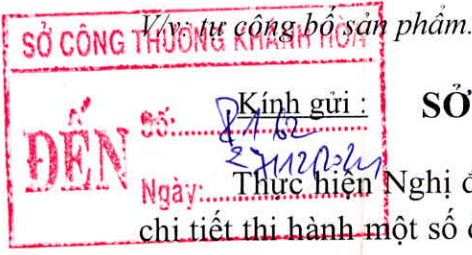 V/v: tự công bố sản phẩm.
SỞ CÔNG THƯƠNG KHÁNH HÒA
Kính gửi : SỞ
ĐẾN
Số: 8162
Ngày: 27/12/2021
Thực hiện Nghị đ
chi tiết thi hành một số đ